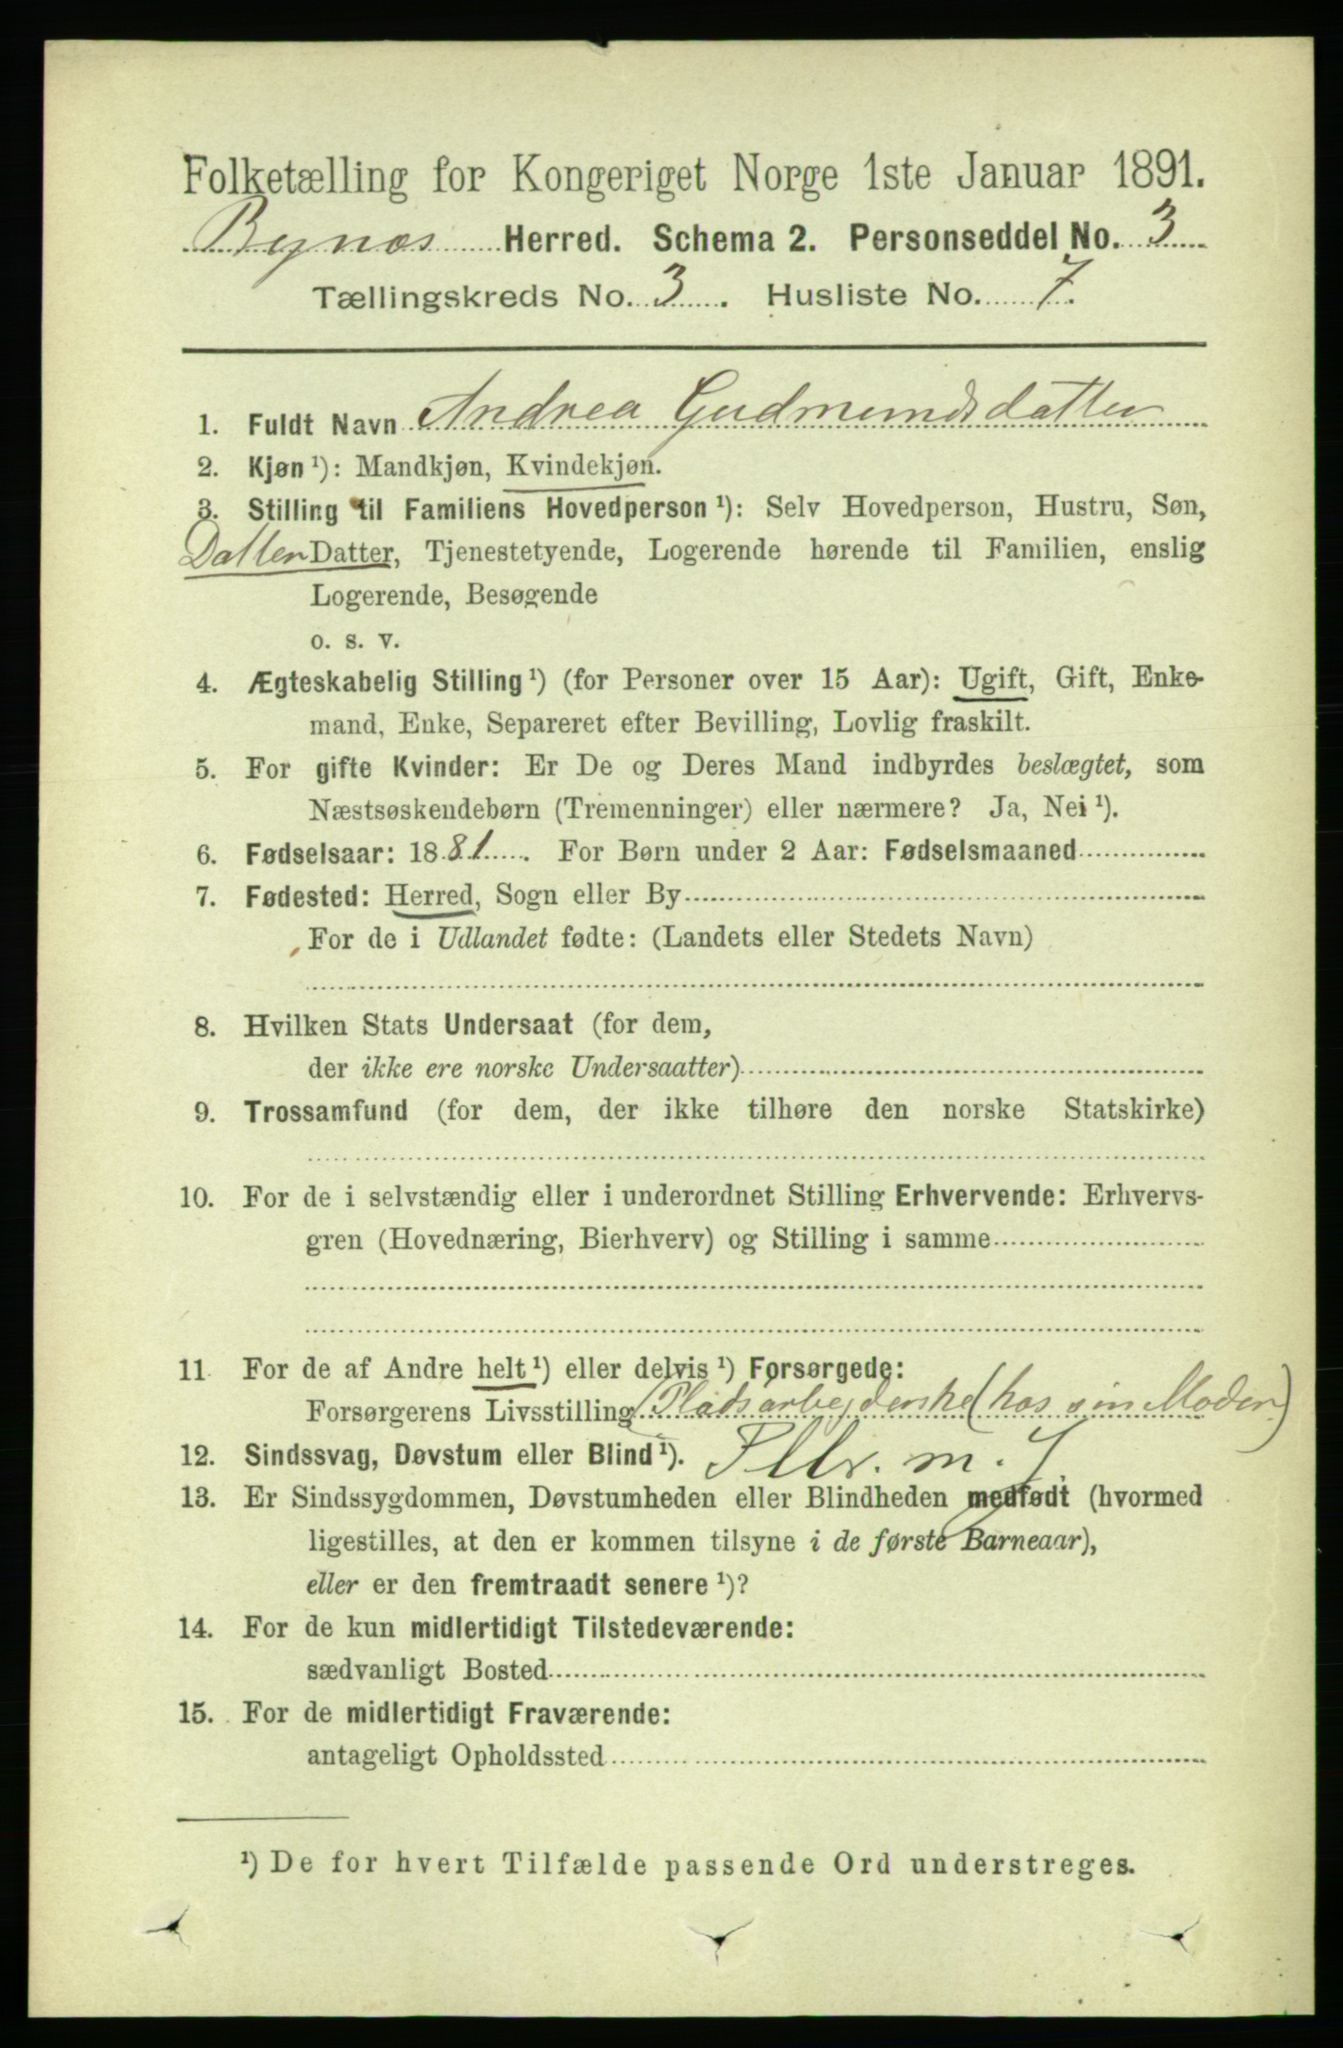 Folketælling for Kongeriget Norge 1ste Januar 1891.
Bynæs Herred. Schema 2. Personseddel No. 3
Tællingskreds No. 3. Husliste No. 7.
1. Fuldt Navn Andrea Gudmundsdatter
2. Kjøn ¹): Mandkjøn, Kvindekjøn.
3. Stilling til Familiens Hovedperson ¹): Selv Hovedperson, Hustru, Søn,
Datter Datter, Tjenestetyende, Logerende hørende til Familien, enslig
Logerende, Besøgende
o. s. v.
4. Ægteskabelig Stilling ¹) (for Personer over 15 Aar): Ugift, Gift, Enke-
mand, Enke, Separeret efter Bevilling, Lovlig fraskilt.
5. For gifte Kvinder: Er De og Deres Mand indbyrdes beslægtet, som
Næstsøskendebørn (Tremenninger) eller nærmere? Ja, Nei ¹).
6. Fødselsaar: 1881. For Børn under 2 Aar: Fødselsmaaned
7. Fødested: Herred, Sogn eller By
For de i Udlandet fødte: (Landets eller Stedets Navn)
8. Hvilken Stats Undersaat (for dem,
der ikke ere norske Undersaatter)
9. Trossamfund (for dem, der ikke tilhøre den norske Statskirke)
10. For de i selvstændig eller i underordnet Stilling Erhvervende: Erhvervs-
gren (Hovednæring, Bierhverv) og Stilling i samme
11 For de af Andre helt ¹) eller delvis ¹) Forsørgede:
Forsørgerens Livsstilling (Pladsarbejderske (hos sin Moder)
12. Sindssvag, Døvstum eller Blind ¹). m.
13. Er Sindssygdommen, Døvstumheden eller Blindheden medfødt (hvormed
ligestilles, at den er kommen tilsyne i de første Barneaar),
eller er den fremtraadt senere ¹)?
14. For de kun midlertidigt Tilstedeværende:
sædvanligt Bosted
15. For de midlertidigt Fraværende:
antageligt Opholdssted
¹) De for hvert Tilfælde passende Ord understreges.